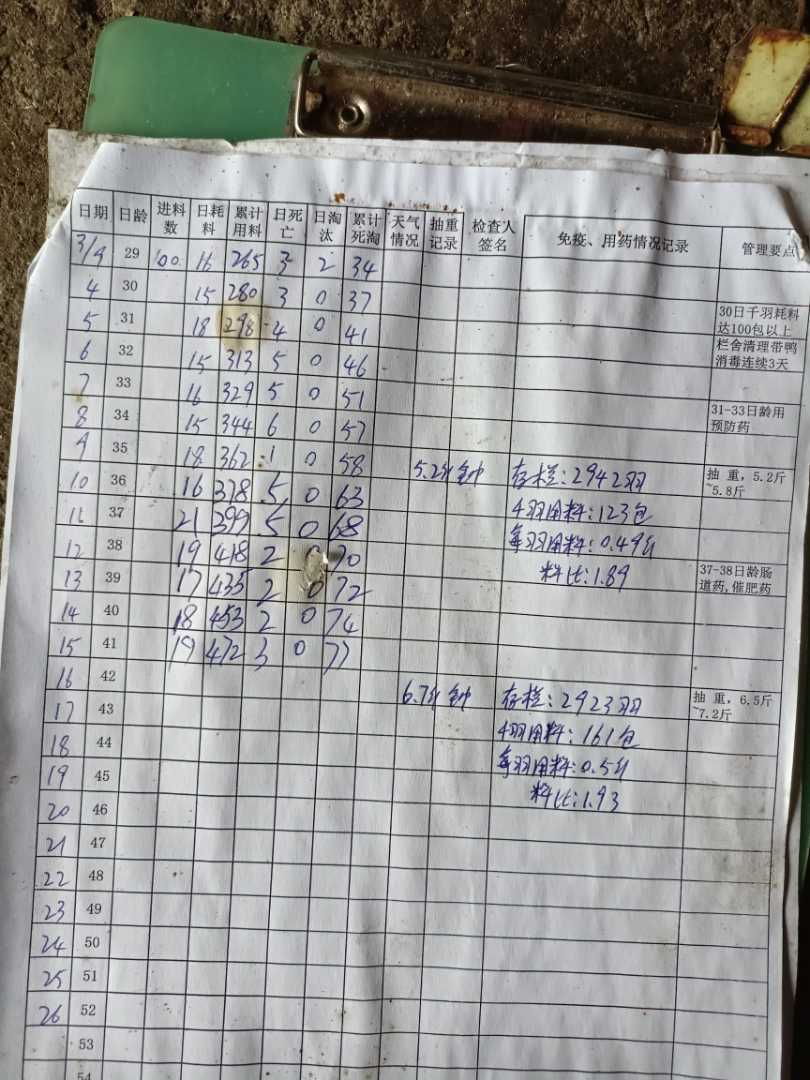 日期 日龄 进料数 日耗料 累计用料 日死亡 日淘汰 累计死淘 天气情况 抽重记录 检查人签名 免疫、用药情况记录 管理要点
3/9 29 100 16 265 3 2 34
4 30 15 280 3 0 37 30日千羽耗料达100包以上
5 31 18 298 4 0 41
6 32 15 313 5 0 46 栏舍清理带鸭消毒连续3天
7 33 16 329 5 0 51
8 34 15 344 6 0 57 31-33日龄用预防药
9 35 18 362 1 0 58 5.2斤钟 存栏:2942羽
10 36 16 378 5 0 63 抽重,5.2斤~5.8斤
千羽用料:123包
11 37 21 399 5 0 68
每羽用料:0.49斤
12 38 19 418 2 0 70
料比:1.89
13 39 17 435 2 0 72 37-38日龄肠道药,催肥药
14 40 18 453 2 0 74
15 41 19 472 3 0 77
16 42 6.7斤钟 存栏:2923羽
17 43 抽重,6.5斤~7.2斤
千羽用料:161包
18 44
每羽用料:0.5斤
19 45
料比:1.93
20 46
21 47
22 48
23 49
24 50
25 51
26 52
53
54